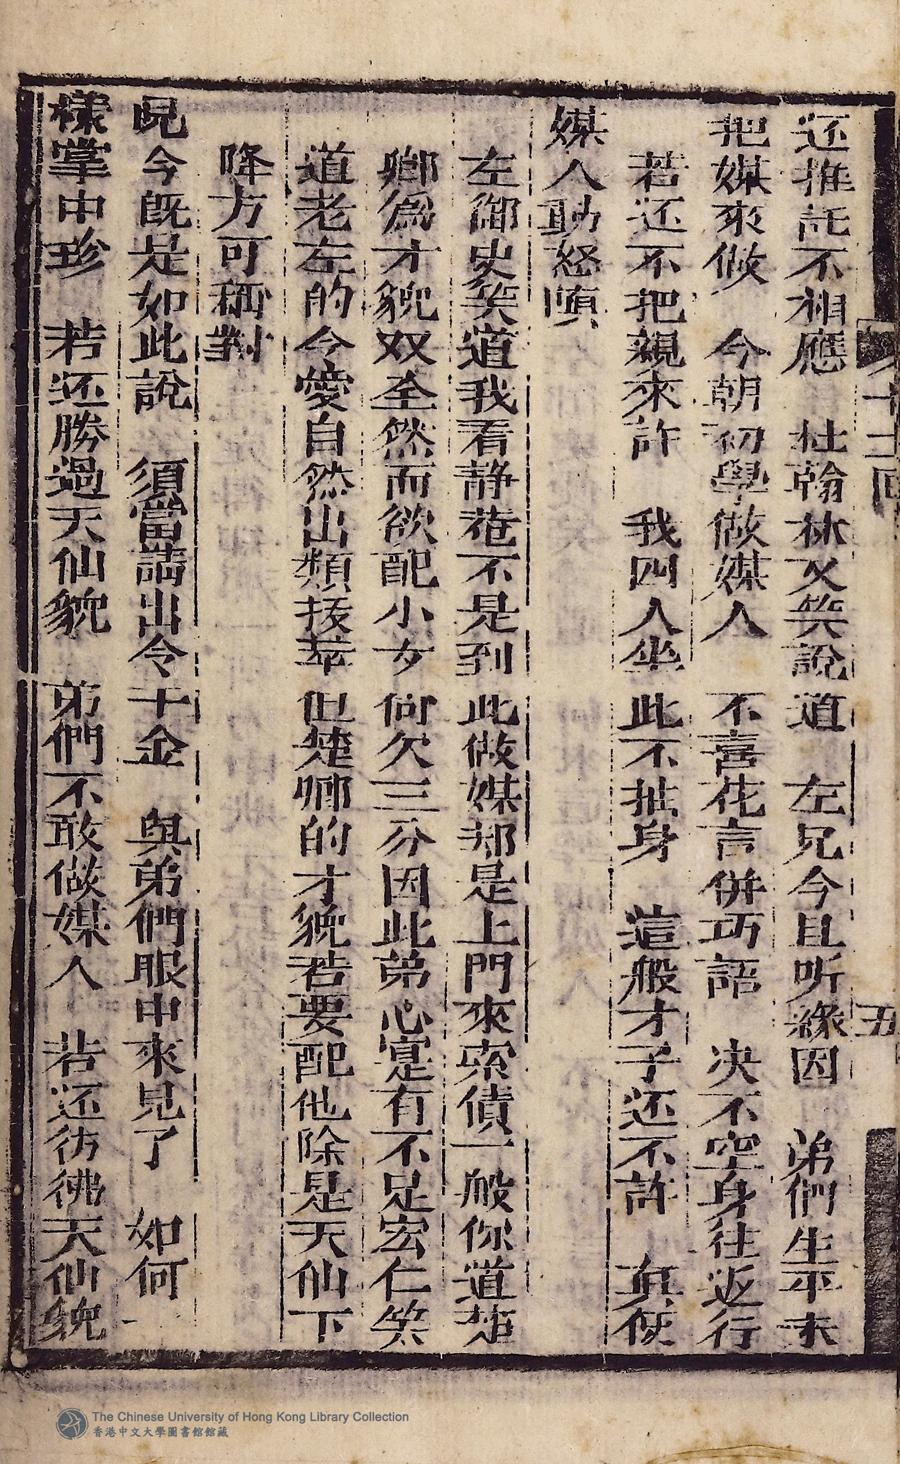 还推託不相應　杜翰林又笑說道　左兄今且听緣因　弟們生平未
把媒來做　今朝初學做媒人　不喜花言併巧語　决不空身往返行
若还不把親來許　我四人坐此不抽身　這般才子还不許　真使
媒人動怒嗔
左御史笑道我看静菴不是到此做媒却是上門來索債一般你道楚
卿為才貌双全然而欲配小女尚欠三分因此弟心寔有不足宏仁笑
道老左的令愛自然出類拔萃但楚卿的才貌若要配他除是天仙下
降方可稱對
見今既是如此說　須當請出令千金　與弟們眼中來見了　如何一
樣掌中珍　若还勝過天仙貌　弟們不敢做媒人　若还彷彿天仙貌
十二回
五
The Chinese University of Hong Kong Library Collection
香港中文大學圖書館館藏